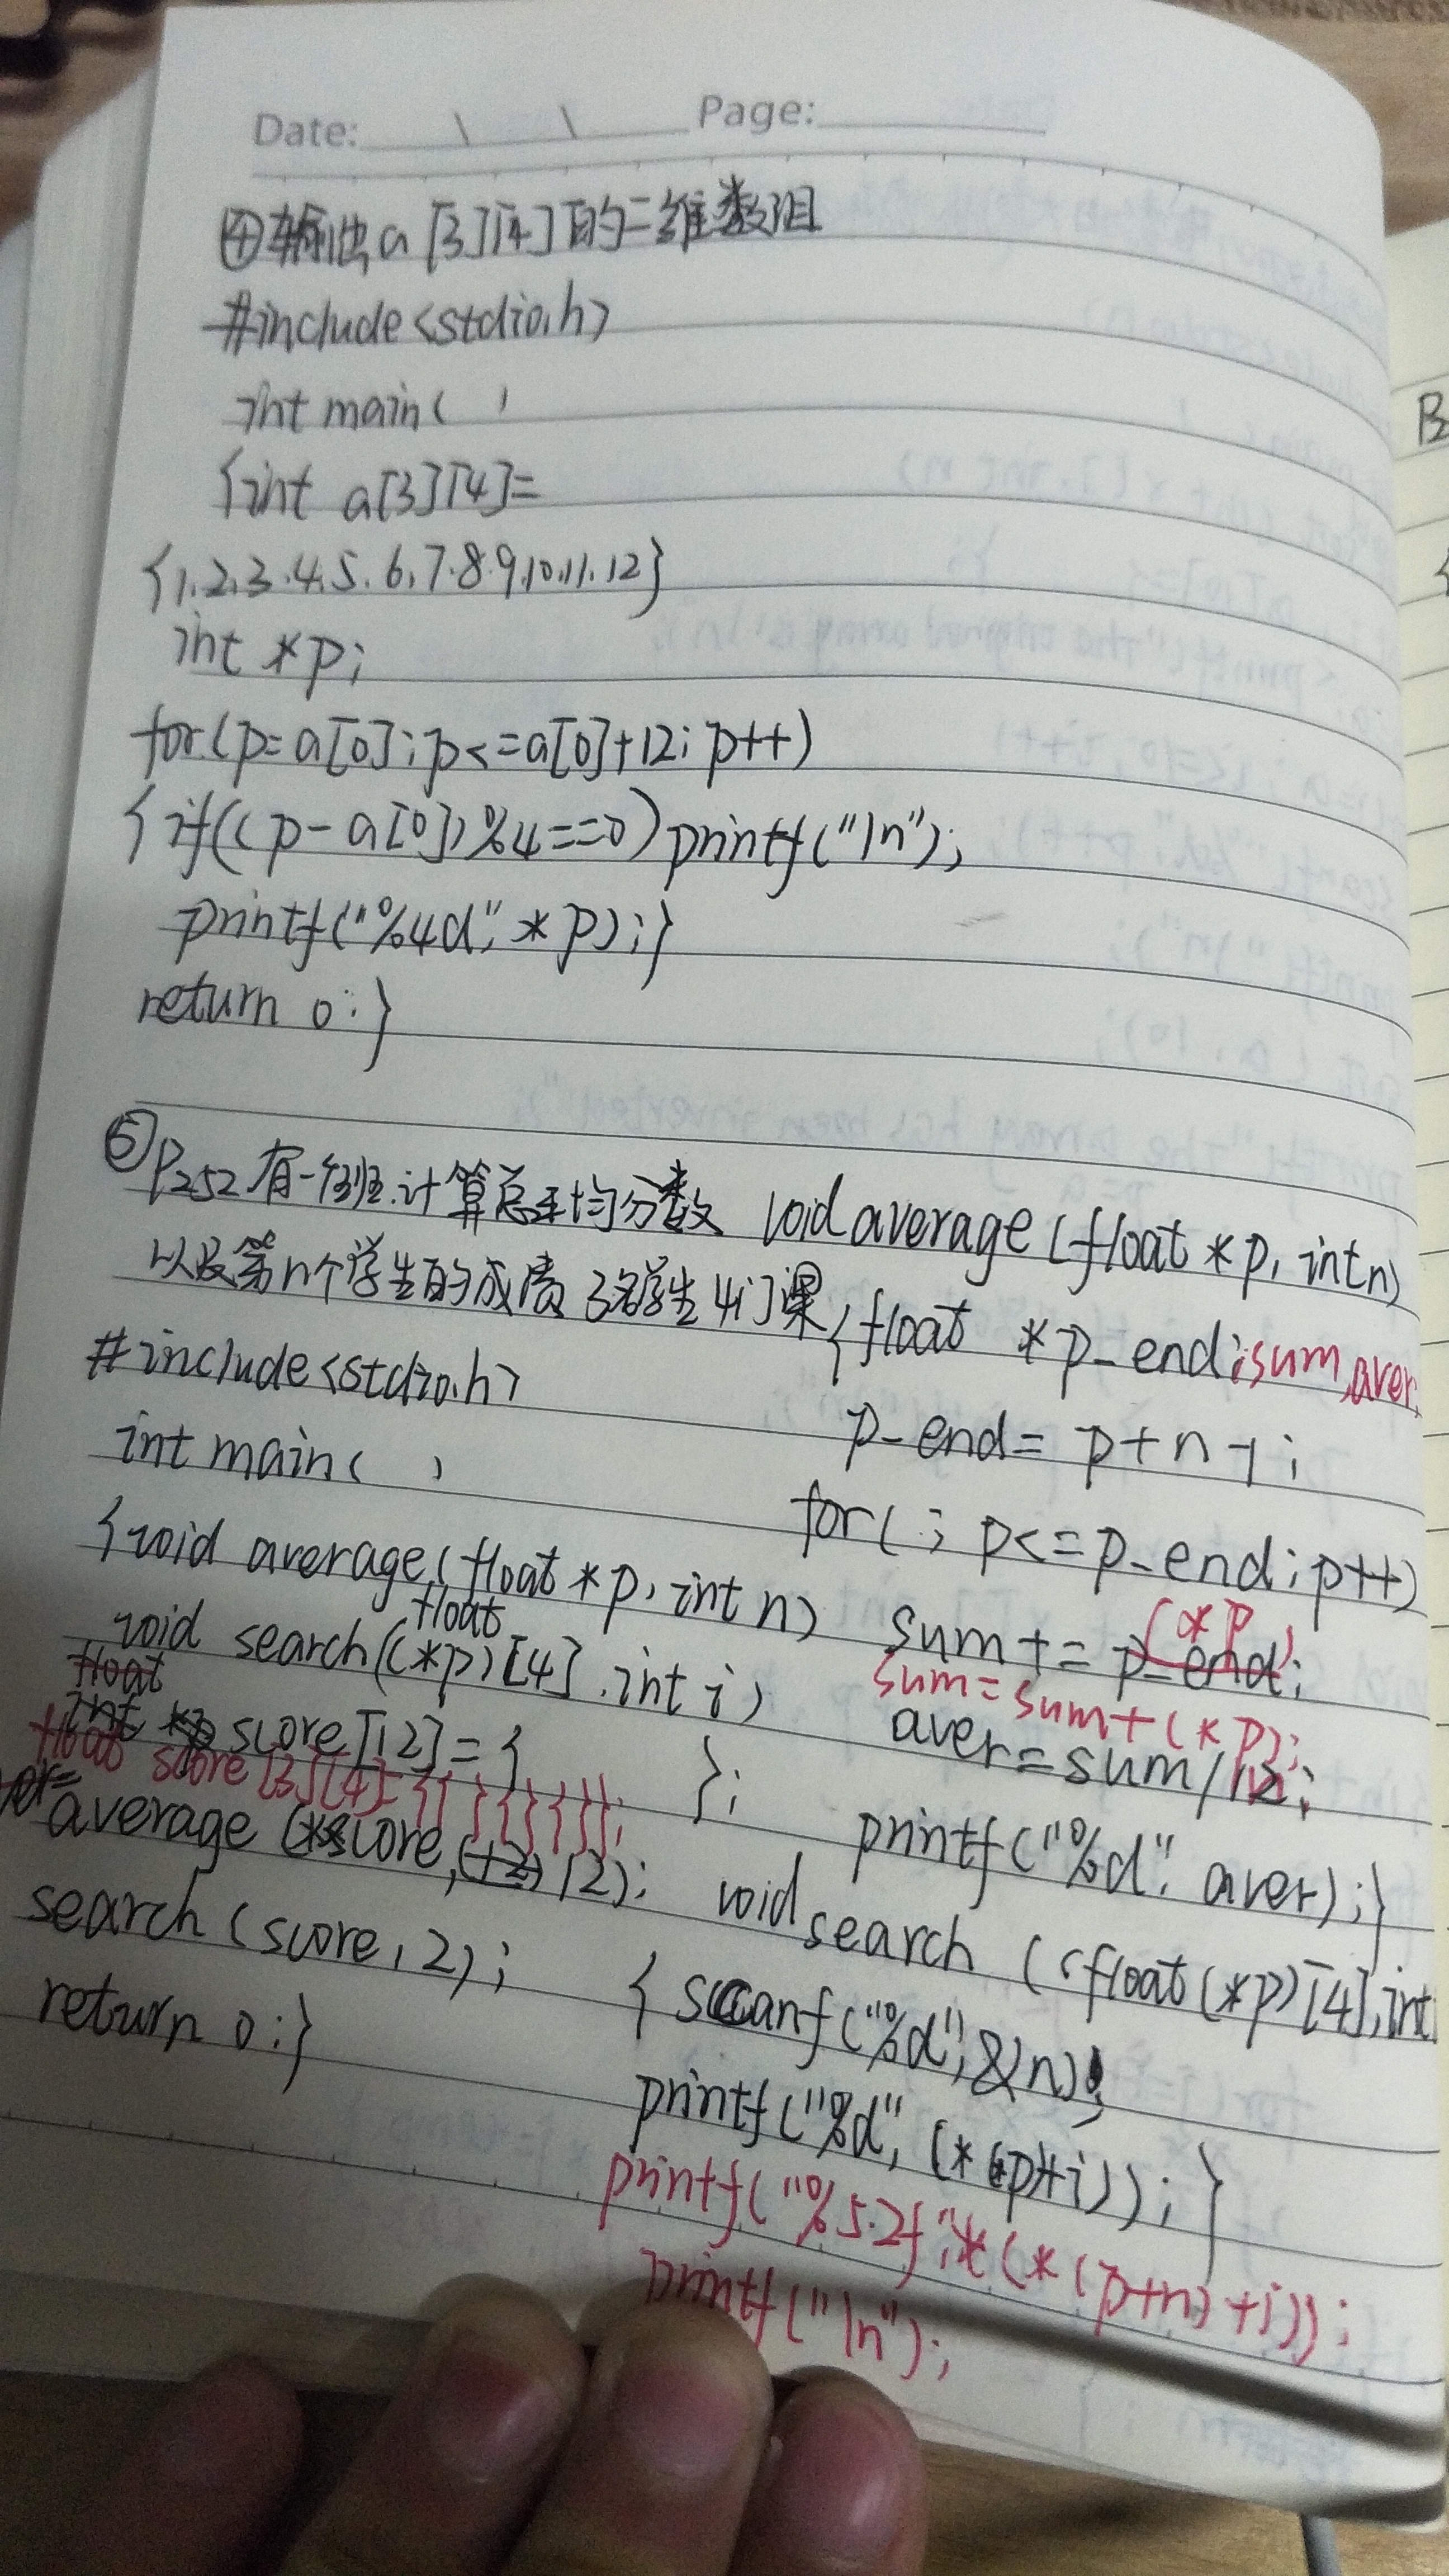 Date: \ \ Page:
④输出a[3][4]的二维数组
#include<stdio.h>
int main( )
{int a[3][4]=
{1.2.3.4.5.6.7.8.9.10.11.12}
int *p;
for(p=a[0];p<=a[0]+12;p++)
{if((p-a[0])%4==0)printf("\n");
printf("%4d",*p);}
return 0;}
⑤P252有一个班.计算总平均分数
以及第n个学生的成绩 3名学生4门课
#include<stdio.h>
int main( )
{void average(float*p,int n)
float
void search((*p)[4].int i)
float
int *p score[12]={ };
float score[3][4]={{ }{ }{ }};
average(*score,(+2)12);
search(score,2);
return 0;}
void average(float*p,int n)
{float *p_end;sum,aver,
p_end=p+n-1;
for(;p<=p_end;p++)
(*p)
sum+=p_end;
sum=sum+(*p);
aver=sum/12;
n
printf("%d".aver);}
void search((float(*p)[4],int
{scanf("%d",&n);
printf("%d",(*(p)+i));}
printf("%5.2f",*(*(p+n)+i));
printf("\n");
B
{